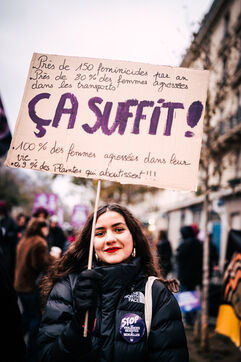 Près de 150 féminicides par an
Près de 80 % des femmes agressées
dans les transports
ÇA SUFFIT !
100 % des femmes agressées dans leur
vie
0,9 % des Plaintes qui aboutissent !!!
THE
NORTH
FACE
STOP